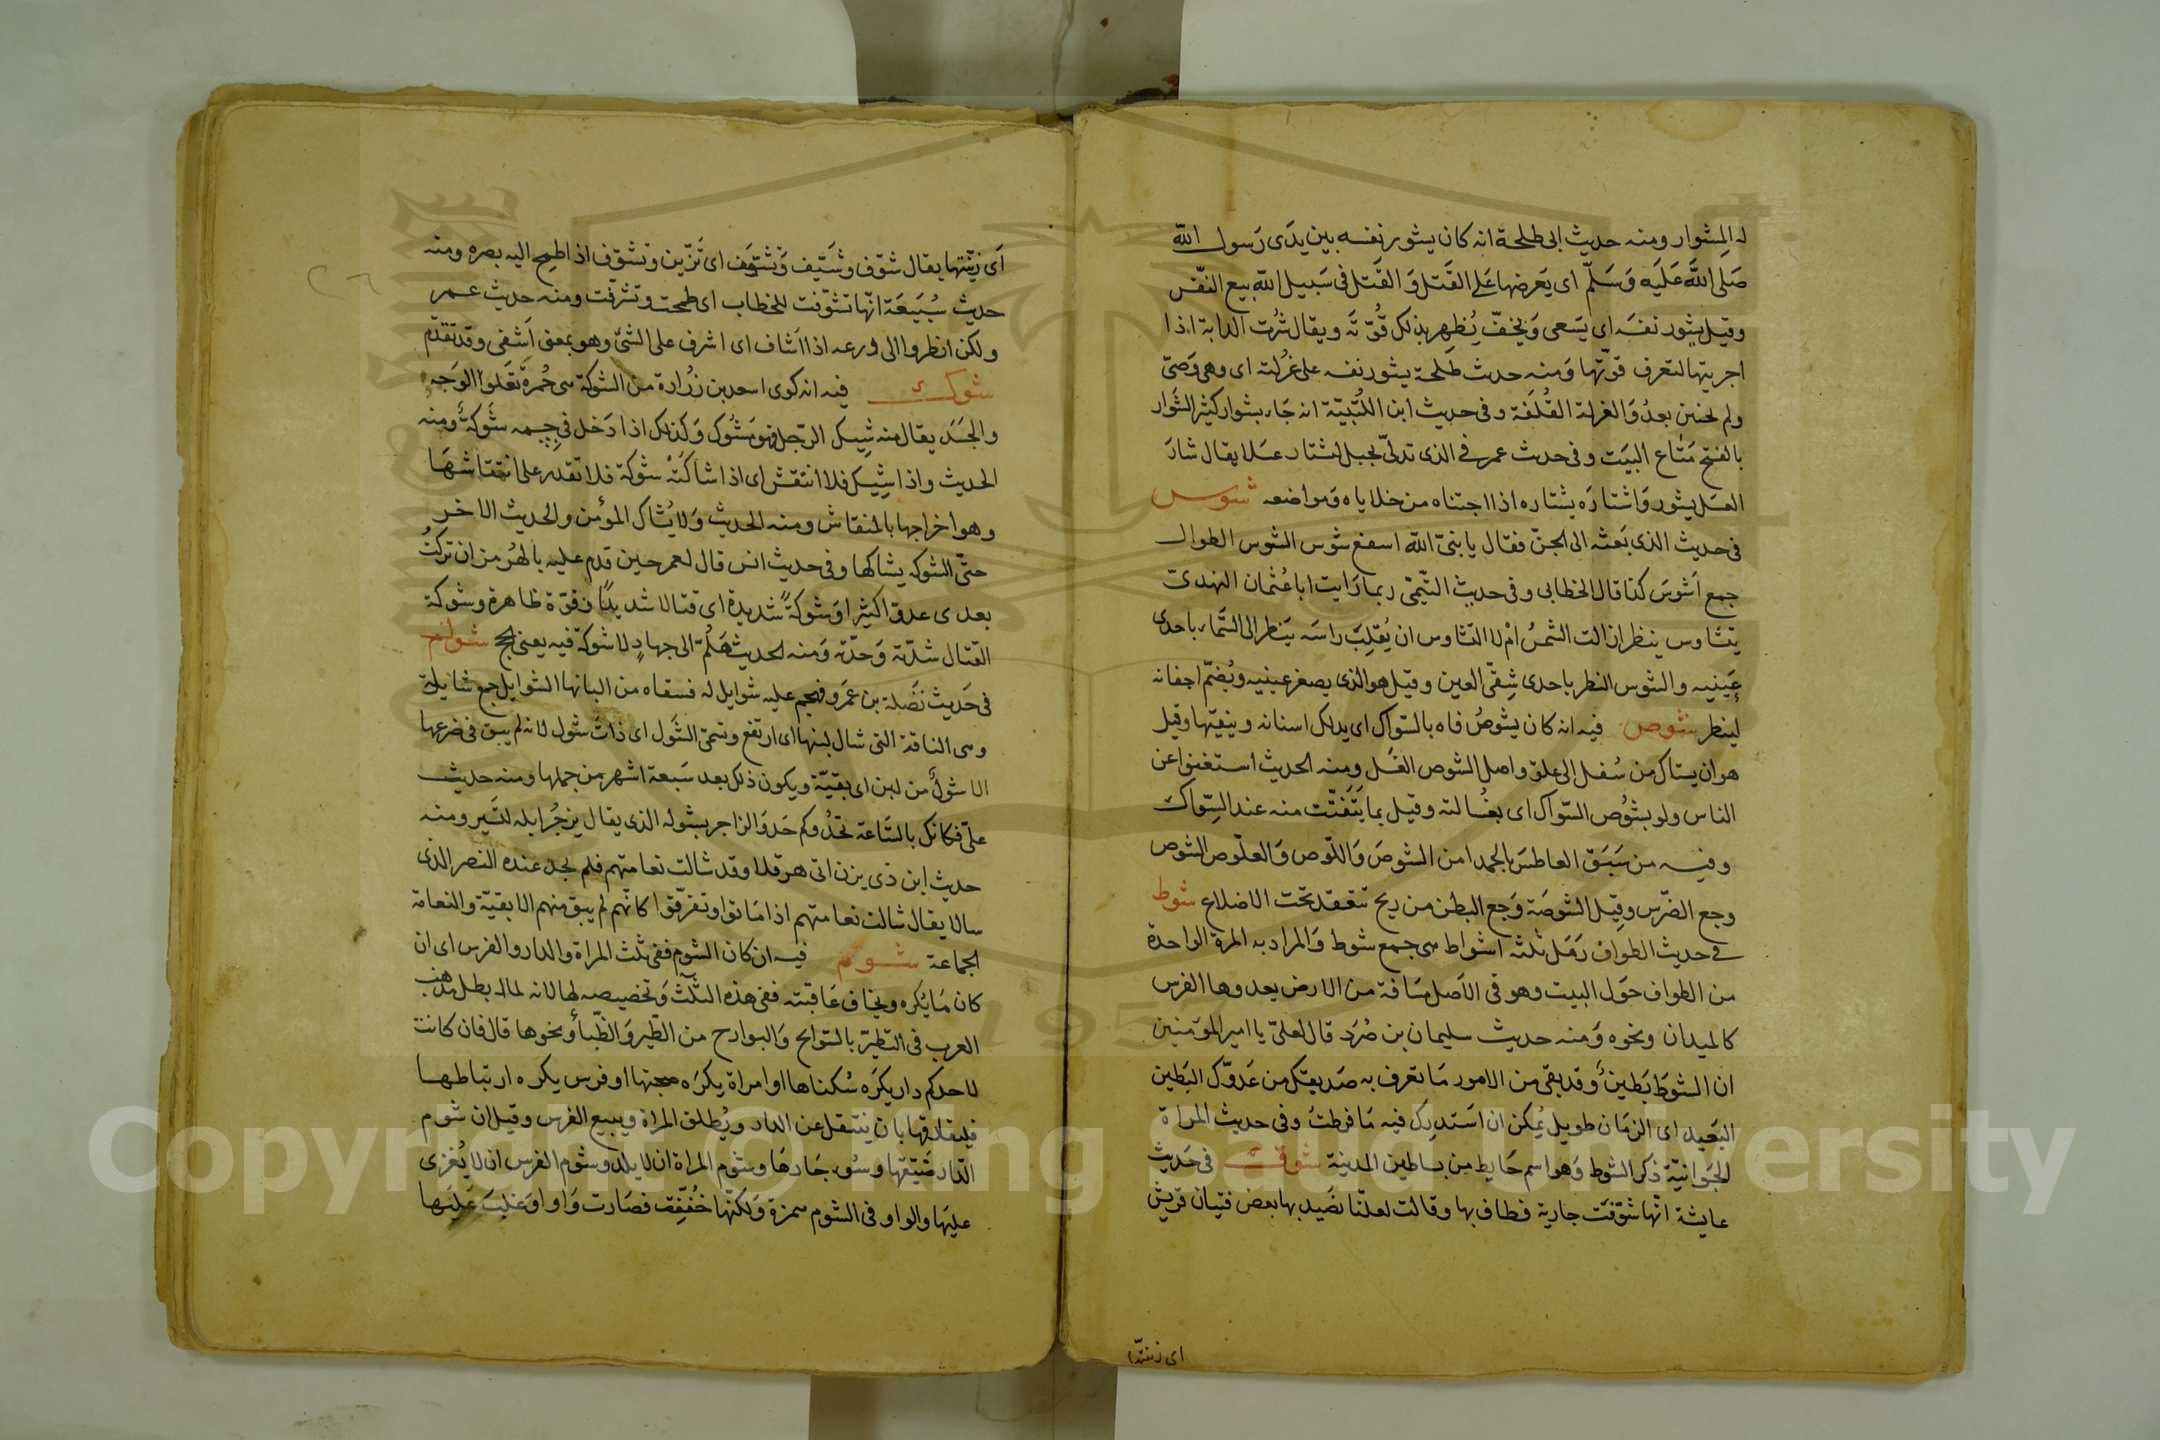 له المِشوار ومنه حديث ابى طلحة انه كان يشور نفسه بين يدَى رَسول الله
صَلى اللهُ عَلَيه وَسَلّم اى يَعرضها عَلى القَتل وَالقَتل فى سَبيل الله بيع النفس
وقيل يشور نفسَه اى يَسعى وَيخفّ يُظهِر بذلك قُوّتَه ويقال شُرت الدابة اذا
اجريتها لتعرف قوّتها وَمنه حديث طَلحة يشور نفسه على غُرلته اى وهى وَصىّ
ولم يختتن بعدُ وَالغرلة القُلفَة وفى حديث ابن اللُتبيّة انه جَاء بشوار كثير الشَوار
بالفتح مَتاع البيَت وفى حديث عمر فى الذى تدلّى بحبل لشتار عسَلا يقال شارَ
العسَل يشور وَاشتارَه يشتاره اذا اجتناه من خلاياه وَمواضعه شوس
فى حديث الذى بَعَثه الى الجنّ فقال يا نبىّ الله اسفع شوس الشوس الطوال
جمع اَشوسَ كذا قال الخطابى وفى حديث التّيمّى ربما رَايت ابا عُثمان النهدىّ
يتشاوس ينظر ازالت الشمسُ امْ لا التشاوس ان يُقلِبَ راسَه يَنظر الى السّماء باحدى
عَينيه والشوس النظر باحدى شِقّى العين وقيل هو الذى يصغر عينيه ويُضمّ اجفانه
لينظر شوص فيه انه كان يشوصُ فاه بالسّواك اى يدلك اسنانه وينقيّها وقيل
هو ان يستاك من سُفل الى علو واصل الشوص الغَسل ومنه الحديث استغنوا عن
الناس ولو بشَوُص السّواك اى بغُسالته وقيل بما يَتَفتّت منه عند السِّواك
وفيه من سَبَق العاطسَ بالحمد امن الشوصَ وَاللّوص وَالعلّوص الشوص
وجع الضّرس وقِيل الشوصَة وَجع البطن من ريح تنعقد تحت الاضلاع شوط
فى حديث الطواف رَمَل ثلثه اشواط هى جمع شوط وَالمراد به المرة الواحدة
من الطواف حَول البيت وهو فى الاَصل مسَافة من الارض يعدوها الفرس
كالميدان ونحوه وَمنه حديث سليمان بن صُرَد قال لعلىّ يا امير المؤمنين
ان الشوَط بَطين وقد بقى من الامور مَا تعرف به صَديقك من عَدوّك البَطين
البَعيد اى الزمَان طويل يُمكن ان اَستدرك فيه مَا فرطتُ وفى حديث المراة
الجَوانيّة ذكر الشوط وَهو اسم حَايط من بساطين المدينة شوف فى حَديث
عايشة انّها شوّفت جارية فطاف بها وقالت لعلّنا نصَيد بها بعض فتيان قريش
اى زينتها
اَى زيّنتها يقال شوّف وشَيّف وَتشوَّف اى تَزّين وتشوّف اذا طمح اليه بصره ومنه
حديث سُبَيعَة انّها تشوّفت للخطاب اى طمحت وتشرّفت ومنه حديث عمر
ولكن انظروا الى ورعه اذا اشاف اى اشرف على الشئ وهو بمعنى اَشفى وقد تقدّم
شوك فيه انه كوى اسعد بن زُرارة من الشوكة هى حُمرة تَعلوا الوَجه
والجسَد يقال منه شِيك الرّجل فهو مَشُوك وَكذلك اذا دَخل فى جِسمه شَوكة ومنه
الحديث واذا شِيك فلا انتقش اى اذا شاكَتْهُ شوكة فلا تقدر على انتقاشهَا
وهو اخراجها بالمنقاش ومنه الحديث وَلا يُشاك المؤمن والحديث الاخر
حتّى الشوكه يشاكها وفى حديث انس قال لعمر حين قدم عليه بالهُرمزان تركتُ
بعدى عدوّا كثيرا وَشوكةً شديدة اى قتالا شديدًا وقوّة ظاهرة وشوكة
القتال شدّته وَحدّته وَمنه الحديث هَلُمّ الى جهادٍ لا شوكة فيه يعنى الحج شول
فى حَديث نَضلة بن عَمرو فهجم عليه شوايل له فسقاه من البانها الشوايل جمع شايلة
وهى الناقة التى شال لبنها اى ارتفع وتسمّى الشَول اى ذات شول لانه لم يبق فى ضرعها
الا شولٌ من لبن اى بقيّة ويكون ذلك بعد سَبعة اشهر من حملها ومنه حديث
علىّ فكانكم بالسّاعة تحَدُوكم حَدوَ الزاجر بشوله الذى يقال يَزجُر ابله لتَسير ومنه
حديث ابن ذى يزن اتى هرقلا وقد شالت نعامتهم فلم يجد عنده النصر الذى
سالا يقال شالت نعامتهم اذا مَاتوا وتفرّقوا كانّهم لم يبق منهم الا بقيّة والنعامة
الجماعة شوم فيه ان كان الشوم ففى ثلث المراة والدار والفرس اى ان
كان مَا يُكره ويخاف عَاقبته ففى هذه الثلث وَتخصيصه لها لانه لما ابطل مذهب
العرب فى التطيّر بالسّوانح وَالبوارح من الطّير وَالظّباء ونحوها قال فان كانت
لاحدكم دار يكرَه سُكناها او امراة يكرَه صحبتها او فرس يكره ارتباطها
فليفارقها بان ينتقل عن الدار ويُطلق المراة ويبيع الفرس وقيل ان شوم
الدّار ضَيّقها وسُوء جَارها وشوم المراة ان لا يلد وشوم الفرس ان لا يُغزى
عليهَا والواو فى الشوم همزة وَلكنّها خُفّفت فصَارت وَاوا وَغلبَ عَليَها
Copyright © King Saud University
1957